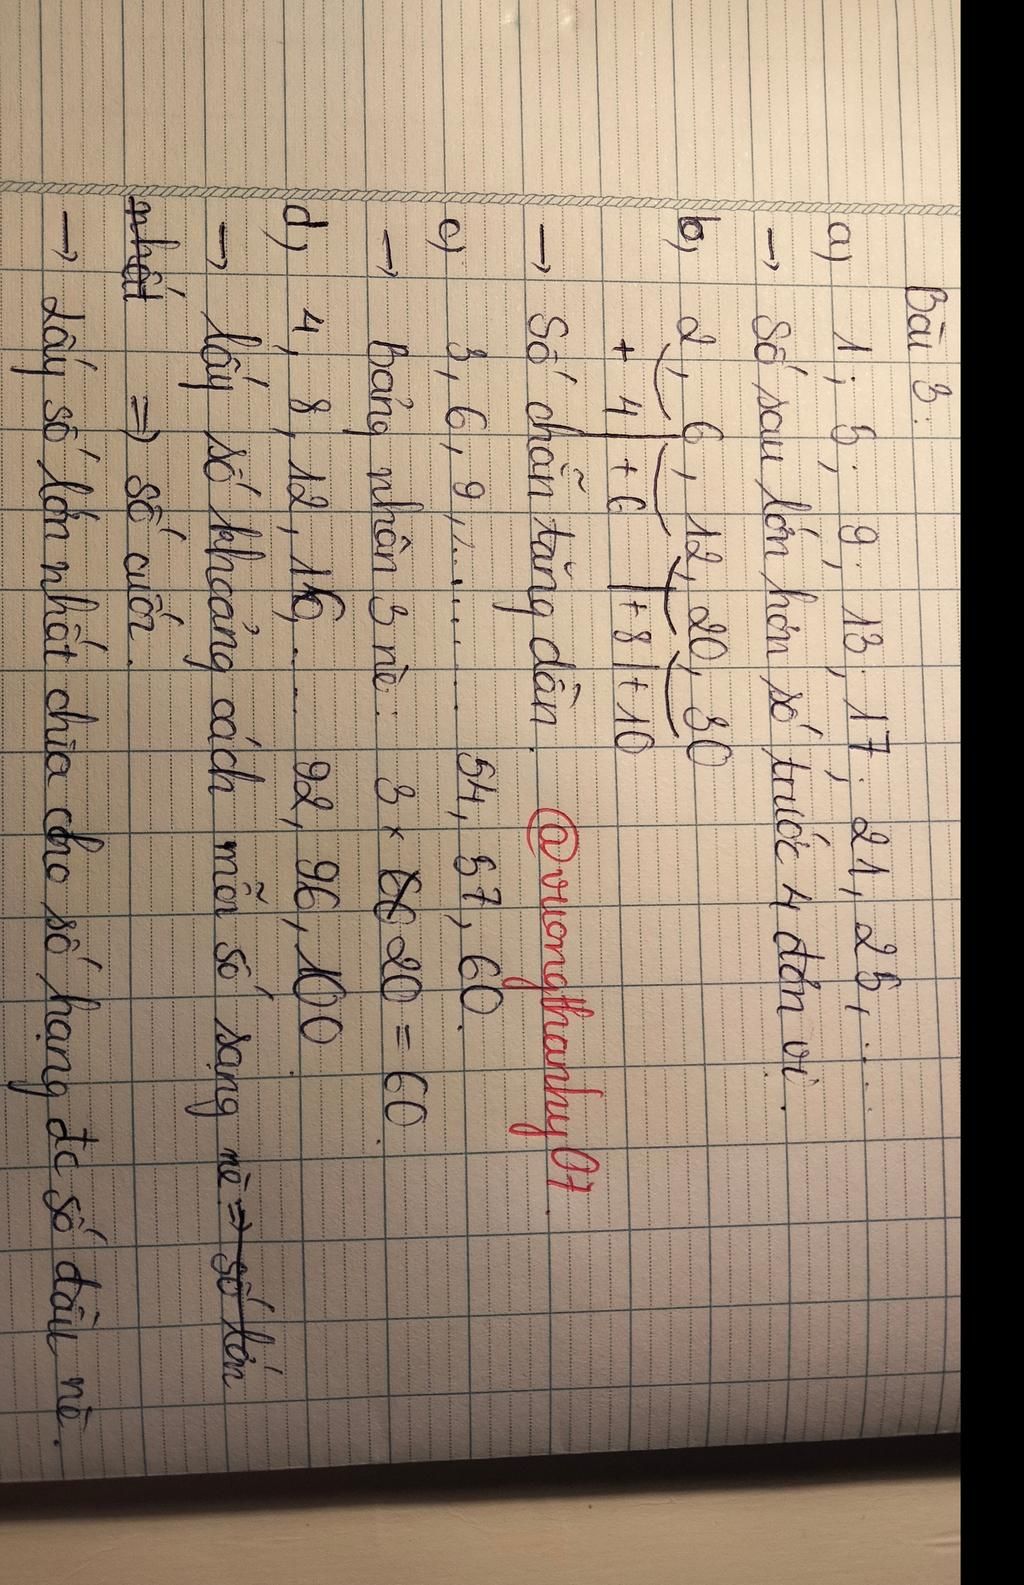 Bài 3:
a) 1; 5; 9; 13; 17; 21, 25, ...
→ Số sau lớn hơn số trước 4 đơn vị.
b, 2, 6, 12, 20, 30
+ 4 | + 6 | + 8 | + 10
→ Số chẵn tăng dần. @vuongthanhy07.
c) 3, 6, 9, ......... 54, 57, 60.
→ Bảng nhân 3 nè: 3 × 20 = 60.
d, 4, 8, 12, 16, ... 92, 96, 100
→ lấy số khoảng cách mỗi số sang nè ⇒ số lớn
nhất ⇒ số cuối.
→ Lấy số lớn nhất chia cho số hạng đc số đầu nè.